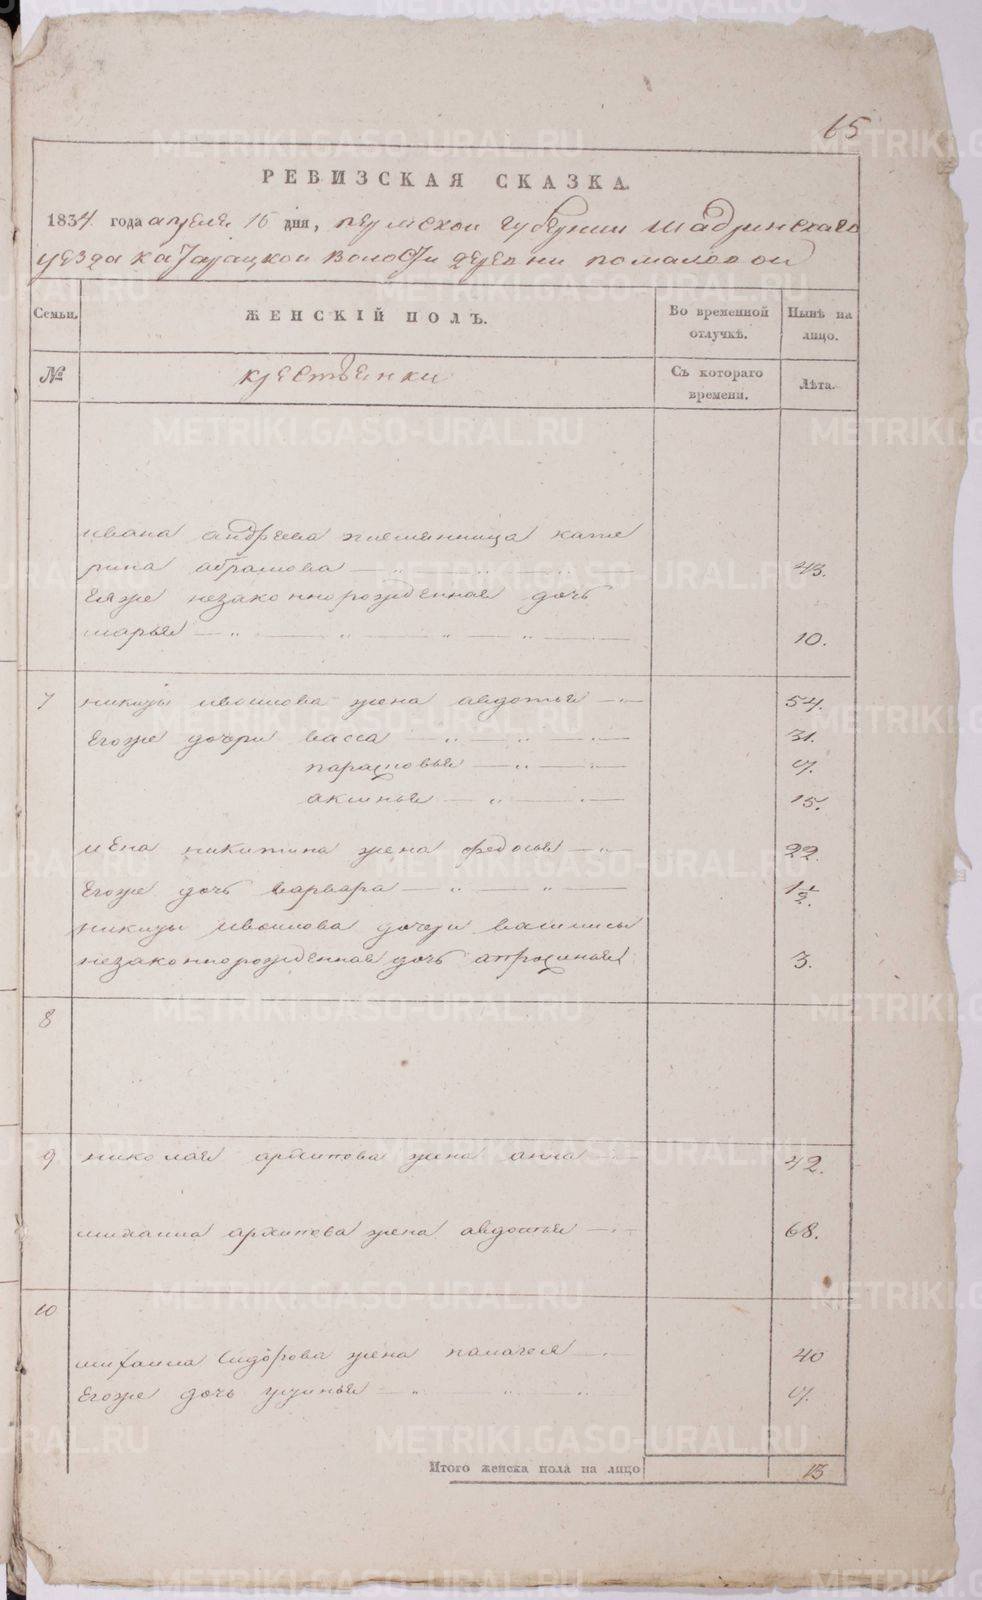 65
РЕВИЗСКАЯ СКАЗКА.
1834 года апреля 16 дня, пермской губернии шадринскаго
уезда катарацкой волости деревни
Семьи. ЖЕНСКІЙ ПОЛЪ. Во временной отлучкѣ. Нынѣ на лицо.
№ крестьянки Съ котораго времени. Лѣта.
ивана андреева племянница кате
рина абрамова 43.
Еяже незаконнорожденная дочь
марья 10.
7 никиты ивanова жена авдотья 54.
Егоже дочери васса 31.
парасковья
аксинья 15.
никитина жена федосья 22.
Егоже дочь варвара 1½.
никиты дочери
незаконнорожденная дочь апросинья 3.
8
9 николая архипова жена анна 42.
михаила архипова жена авдотья 68.
10
михаила Сидорова жена палагея 40
Егоже дочь устинья
Итого женска пола на лицо 13
METRIKI.GASO-URAL.RU